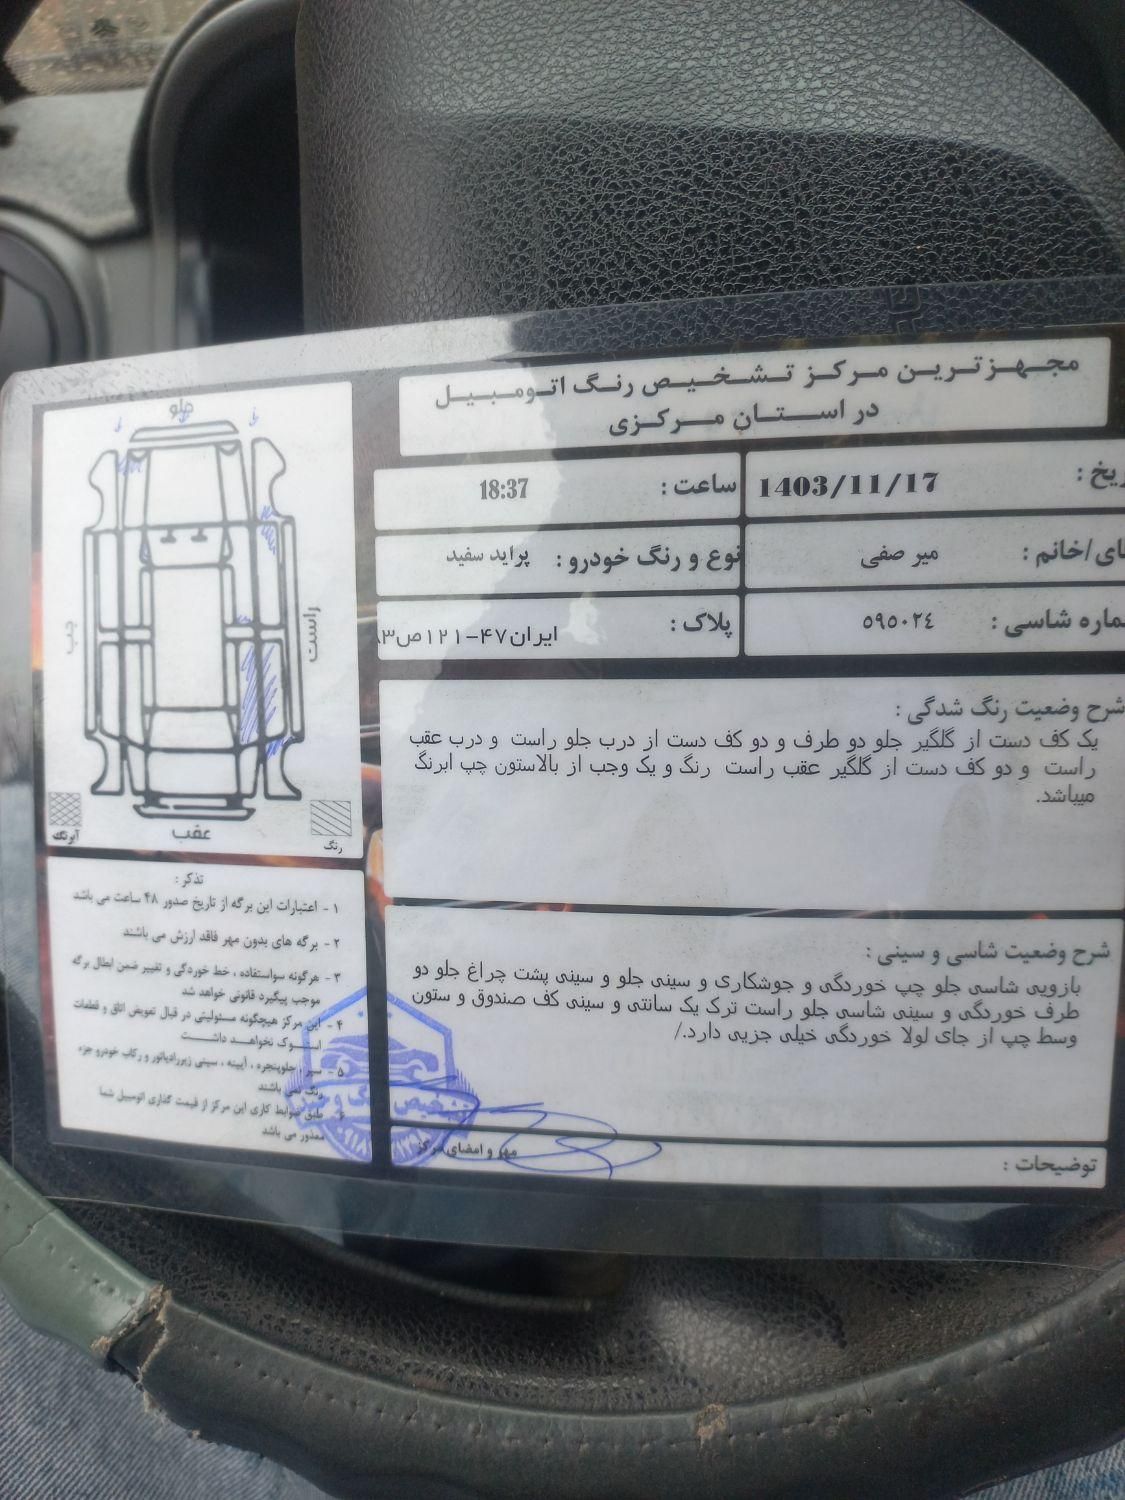 مجهزترین مرکز تشخیص رنگ اتومبیل
در استان مرکزی
ریخ : 1403/11/17
ساعت : 18:37
ای/خانم : میر صفی
نوع و رنگ خودرو : پراید سفید
ماره شاسی : ۵۹۵۰۲٤
پلاک : ایران۴۷-۱۲۱ص۸۳
شرح وضعیت رنگ شدگی :
یک کف دست از گلگیر جلو دو طرف و دو کف دست از درب جلو راست و درب عقب
راست و دو کف دست از گلگیر عقب راست رنگ و یک وجب از بالاستون چپ ابرنگ
میباشد.
شرح وضعیت شاسی و سینی :
بازویی شاسی جلو چپ خوردگی و جوشکاری و سینی جلو و سینی پشت چراغ جلو دو
طرف خوردگی و سینی شاسی جلو راست ترک یک سانتی و سینی کف صندوق و ستون
وسط چپ از جای لولا خوردگی خیلی جزیی دارد./
مهر و امضای مرکز
توضیحات :
جلو
چپ
راست
عقب
آبرنگ
رنگ
تذکر :
۱- اعتبارات این برگه از تاریخ صدور ۴۸ ساعت می باشد
۲- برگه های بدون مهر فاقد ارزش می باشند
۳- هرگونه سواستفاده ، خط خوردگی و تغییر ضمن ابطال برگه
موجب پیگیرد قانونی خواهد شد
۴- این مرکز هیچگونه مسئولیتی در قبال تعویض اتاق و قطعات
استوک نخواهد داشت
۵- سپر ، جلوپنجره ، آیینه ، سینی زیررادیاتور و رکاب خودرو جزء
رنگ نمی باشند
۶- طبق ضوابط کاری این مرکز از قیمت گذاری اتومبیل شما
معذور می باشد
تشخیص رنگ و